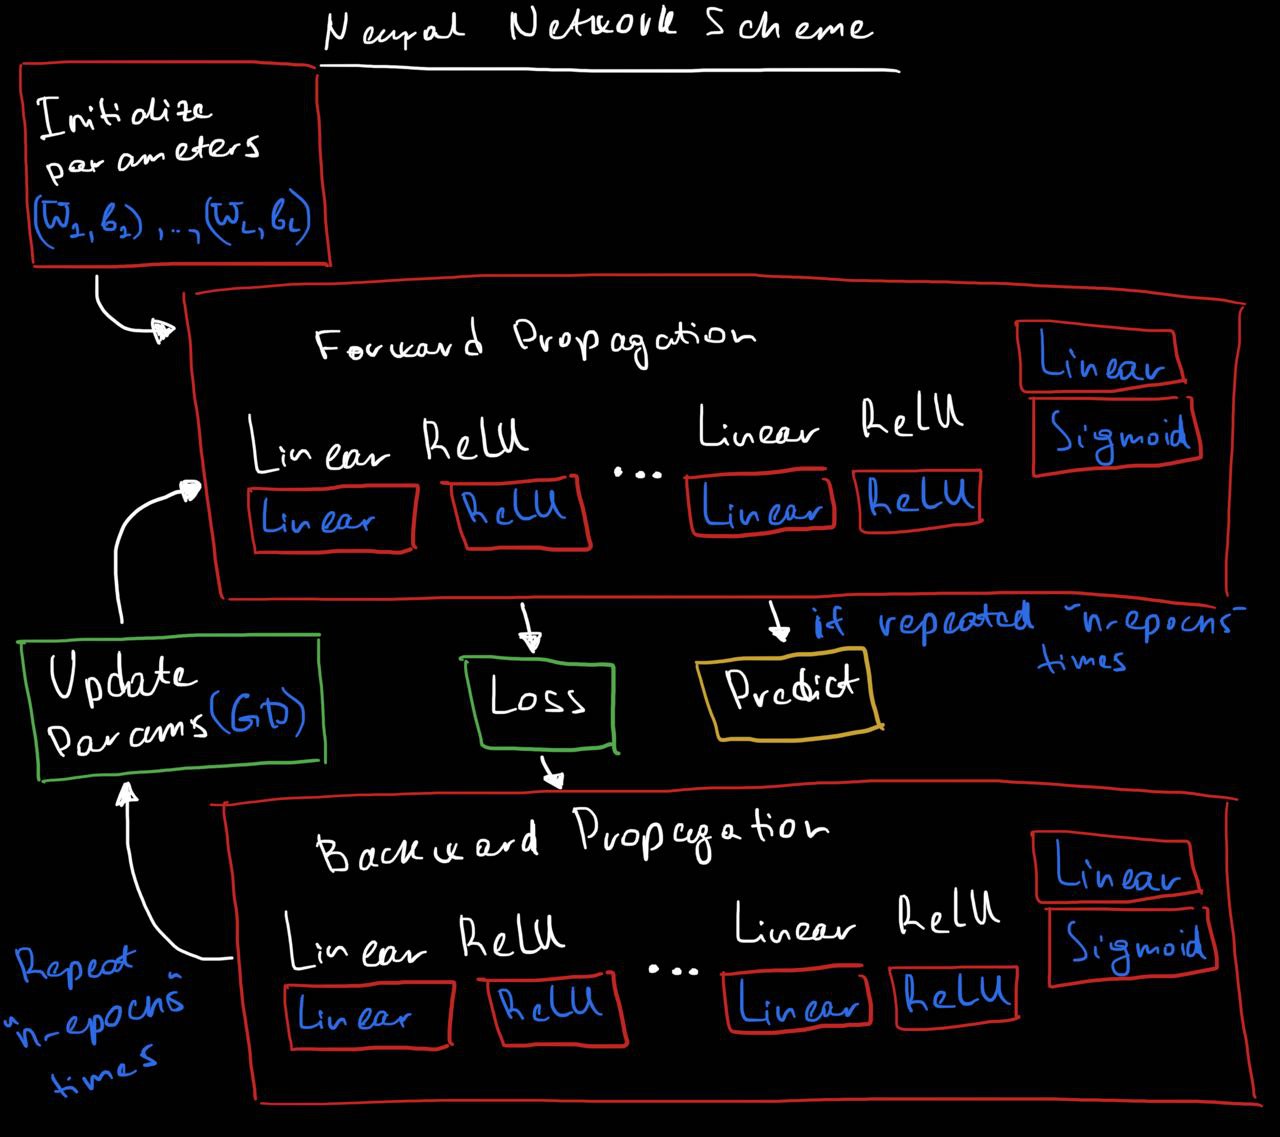 Neural Network Scheme
Initialize
parameters
(W1, b1), ..., (WL, bL)
Forward Propagation
Linear ReLU ... Linear ReLU
Linear ReLU Linear ReLU
Linear
Sigmoid
if repeated "n-epochs"
times
Update
Params (GD)
Loss
Predict
Backward Propagation
Linear ReLU ... Linear ReLU
Linear ReLU Linear ReLU
Linear
Sigmoid
Repeat
"n-epochs"
times